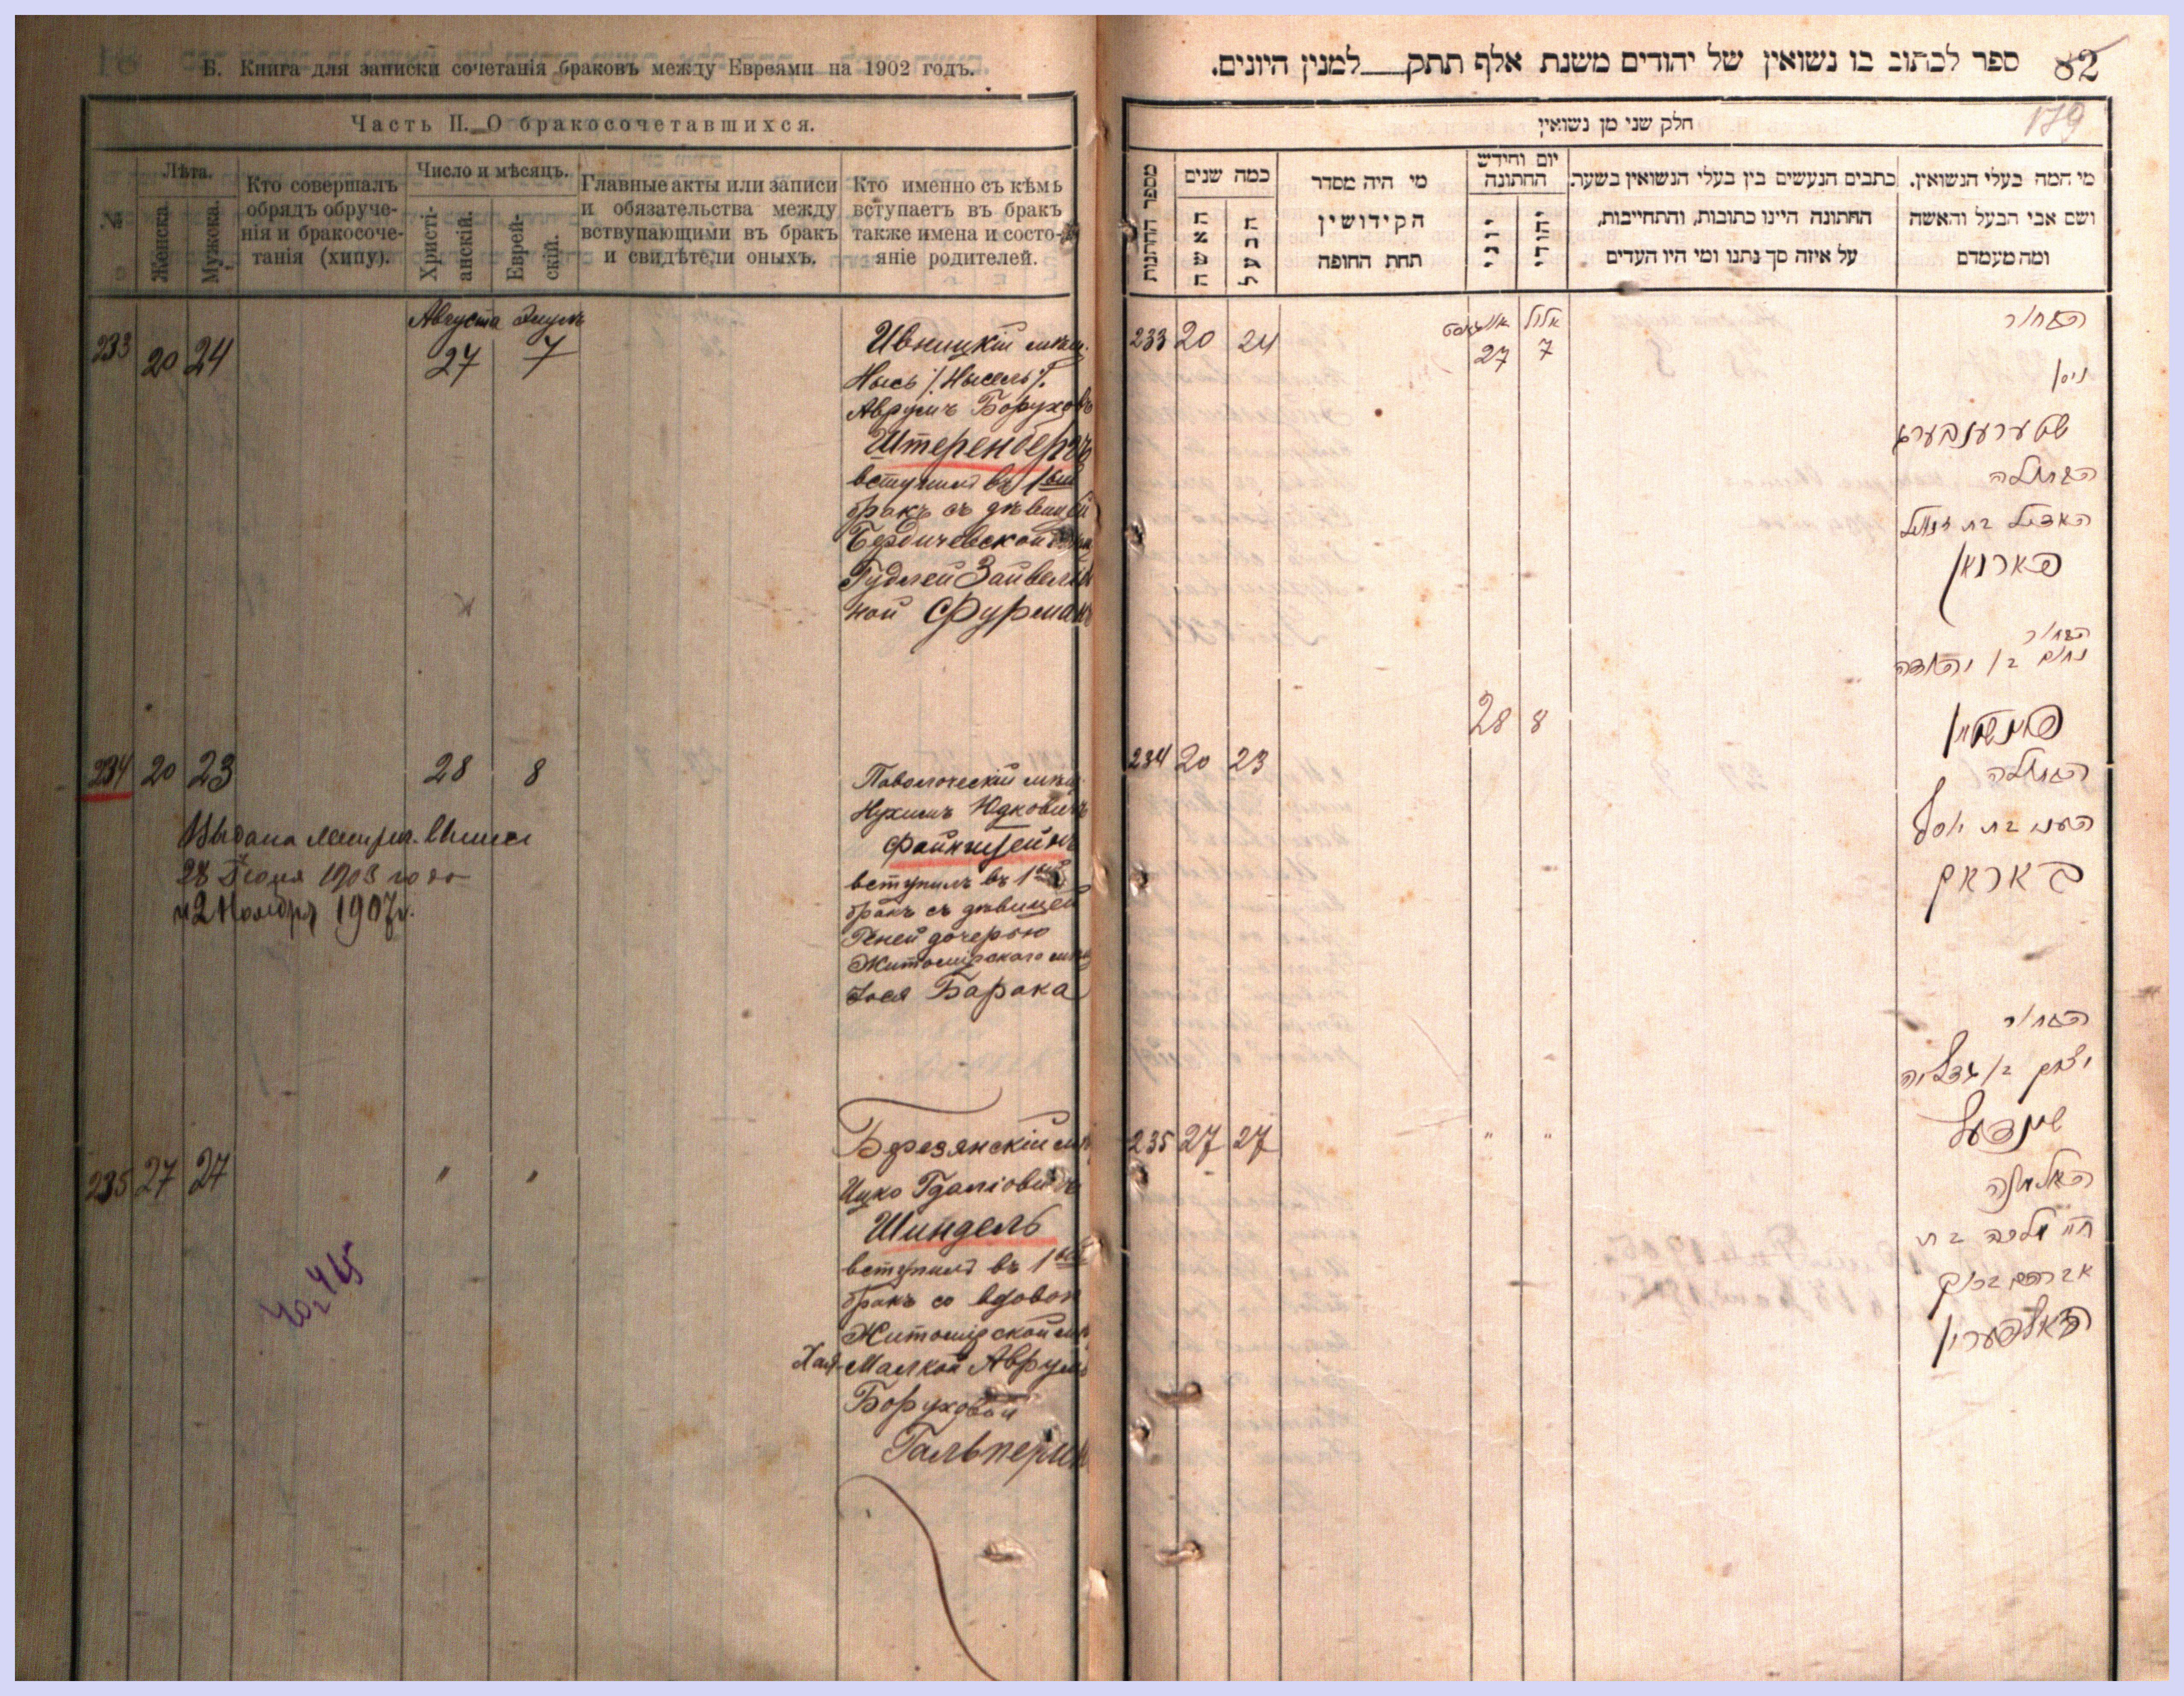 Б. Книга для записки сочетанія браковъ между Евреями на 1902 годъ.
Часть II. О бракосочетавшихся.
№
Лѣта.
Женска.
Мужска.
Кто совершалъ
обрядъ обруче-
нія и бракосоче-
танія (хипу).
Число и мѣсяцъ.
Христі-
анскій.
Еврей-
скій.
Главные акты или записи
и обязательства между
вствупающими въ бракъ
и свидѣтели оныхъ.
Кто именно съ кѣмъ
вступаетъ въ бракъ
также имена и состо-
яніе родителей.
Августа Элуль
233 20 24 27 7
Ивницкій мѣщ.
Нысь /Нысель/.
Аврумъ Боруховъ
Штеренбергъ
вступилъ въ 1ый
бракъ съ дѣвицей
Бердичевской
Гудлей Зайвелев
ной Фурманъ
234 20 23 28 8
Выдана метри.
28 Іюня 1903 года
и 2 Ноября 1907г.
Паволочскій мѣщ.
Нухимъ Юдковичъ
Файнштейнъ
вступилъ въ 1ый
бракъ съ дѣвицей
Геней дочерью
Житомірскаго мѣщ
Іося Барака
235 27 27 " "
Березянскій мѣ
Ицко Гдаліовичъ
Шиндель
вступилъ въ 1ый
бракъ со вдовой
Житомірской мѣ
Хая-Малкой Аврумъ
Боруховой
Гальперинъ
82
ספר לכתוב בו נשואין של יהודים משנת אלף תתק__למנין היונים.
179
חלק שני מן נשואין
מספר החתונות
כמה שנים
האשה
הבעל
מי היה מסדר
הקידושין
תחת החופה
יום וחידש
החתונה
יוני
יהודי
כתבים הנעשים בין בעלי הנשואין בשער.
החתונה היינו כתובות, והתחייבות,
על איזה סך נתנו ומי היו העדים
מי המה בעלי הנשואין.
ושם אבי הבעל והאשה
ומה מעמדם
233 20 24
אויגוסט אלול
27 7
הבחור
ניסן
שטערענבערג
הבתולה
פארמאן
הבחור
נחום בן יהודה
28 8
פיינשטיין
234 20 23
הבתולה
העני בת יוסף
באראק
הבחור
יצחק בן גדליה
שינדעל
235 27 27 " "
האלמנה
חיי מלכה בת
אברהם ברוך
האלפערין